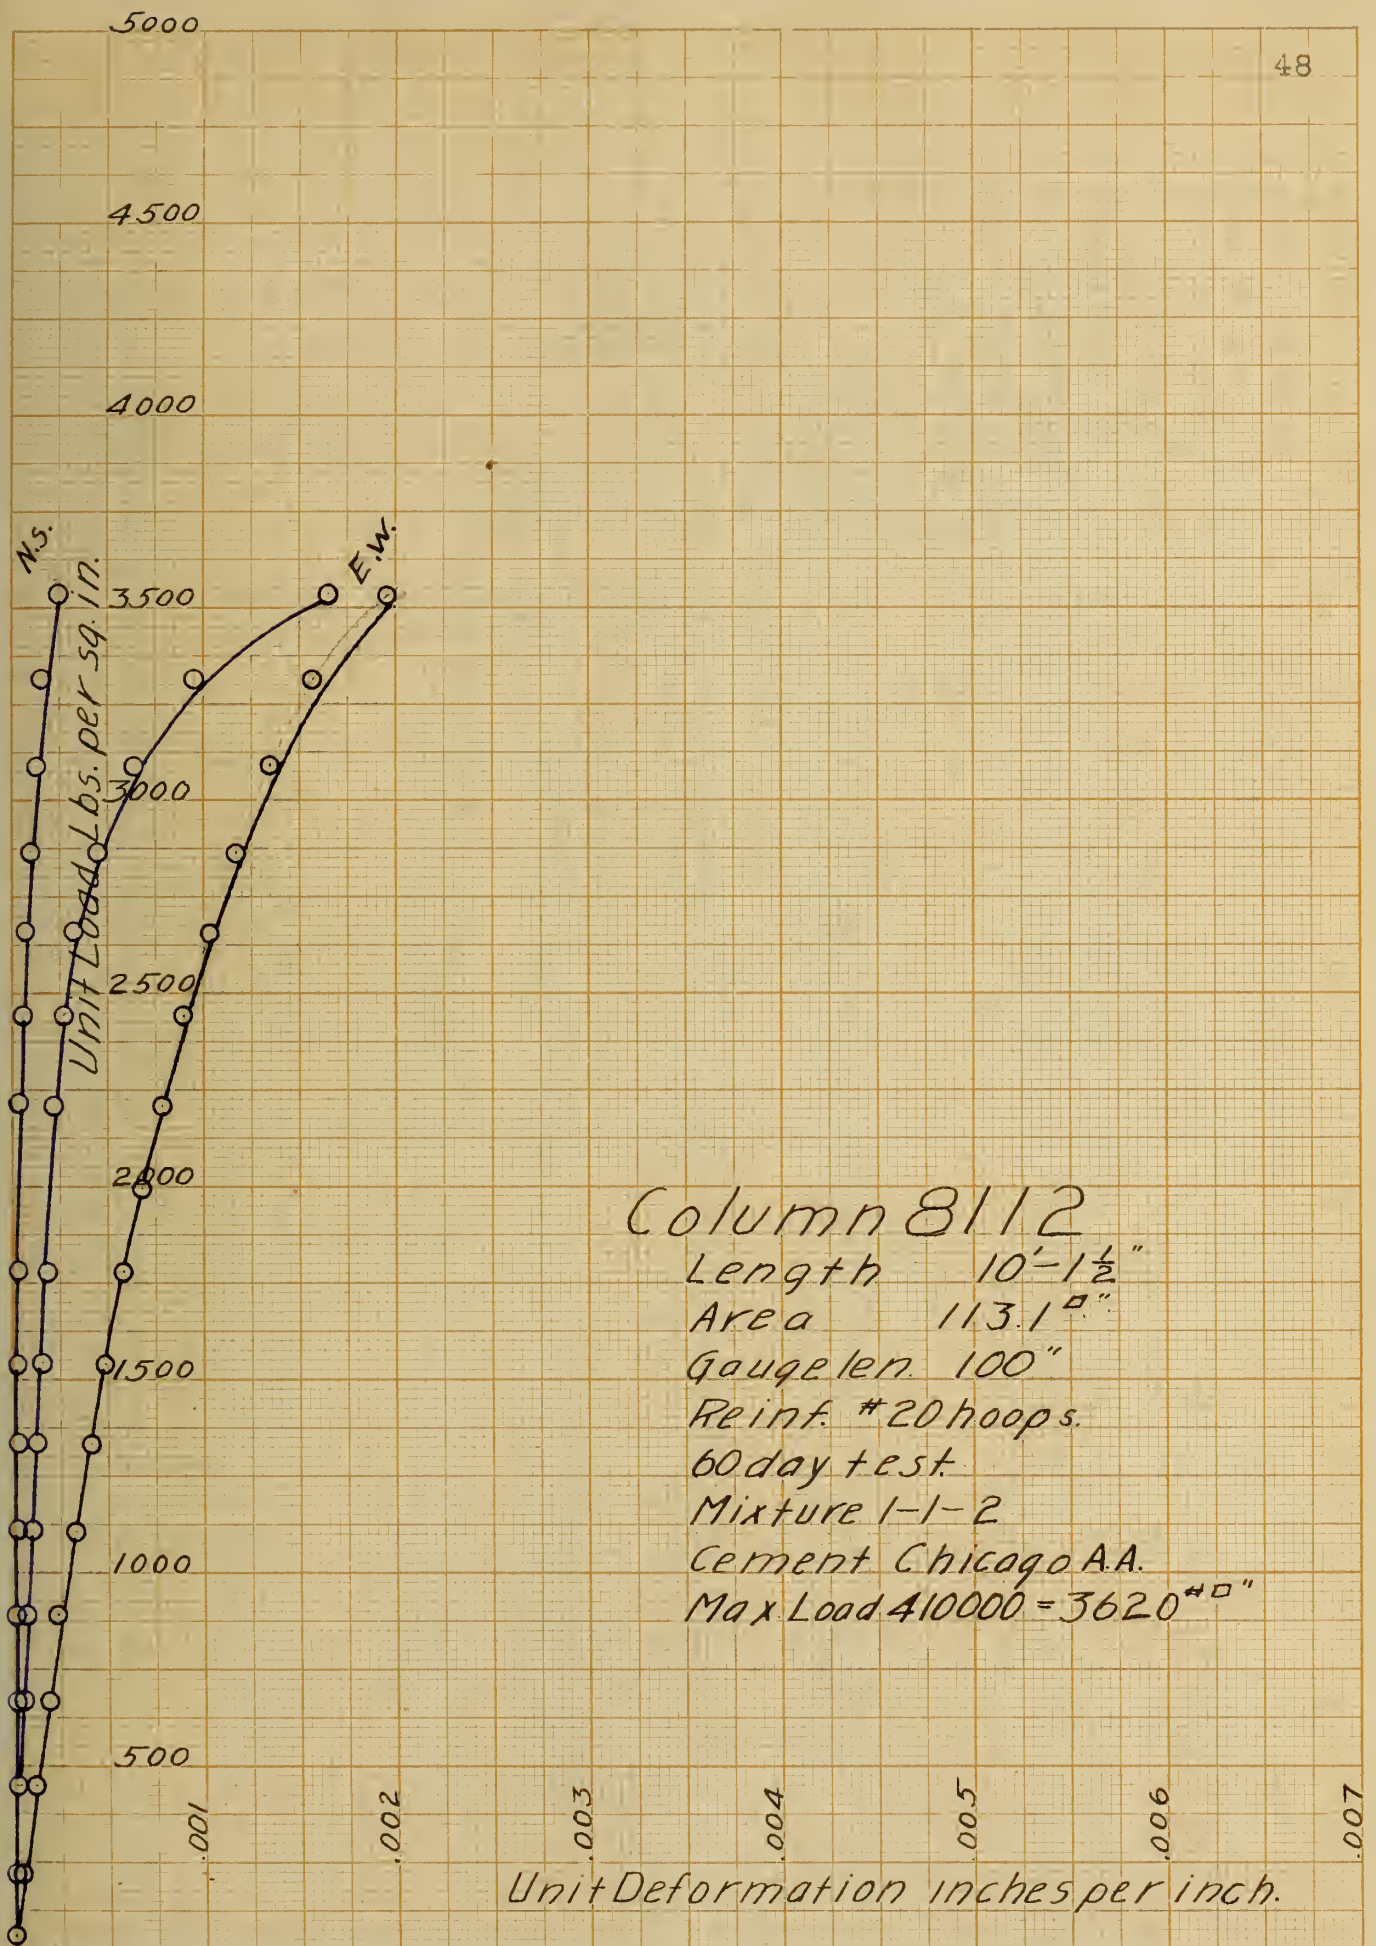 48
5000
4500
4000
3500
3000
2500
2000
1500
1000
500
N.S.
E.W.
Unit Load Lbs. per sq. in.
Column 8112
Length 10'-1½"
Area 113.1□"
Gauge len. 100"
Reinf. #20 hoops.
60 day test.
Mixture 1-1-2
Cement Chicago A.A.
Max Load 410000 = 3620#□"
.001
.002
.003
.004
.005
.006
.007
Unit Deformation inches per inch.